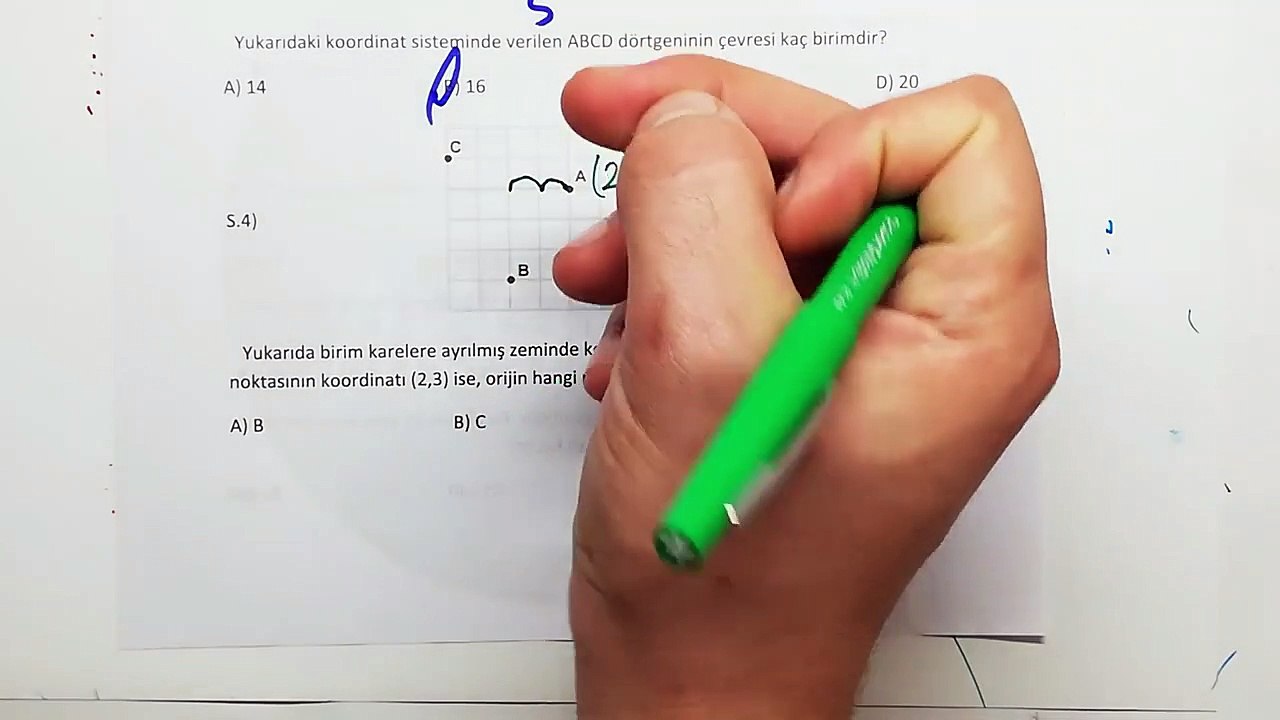 5
Yukarıdaki koordinat sisteminde verilen ABCD dörtgeninin çevresi kaç birimdir?
A) 14 B) 16 D) 20
C
A (2
S.4)
B
Yukarıda birim karelere ayrılmış zeminde
noktasının koordinatı (2,3) ise, orijin hangi
A) B B) C